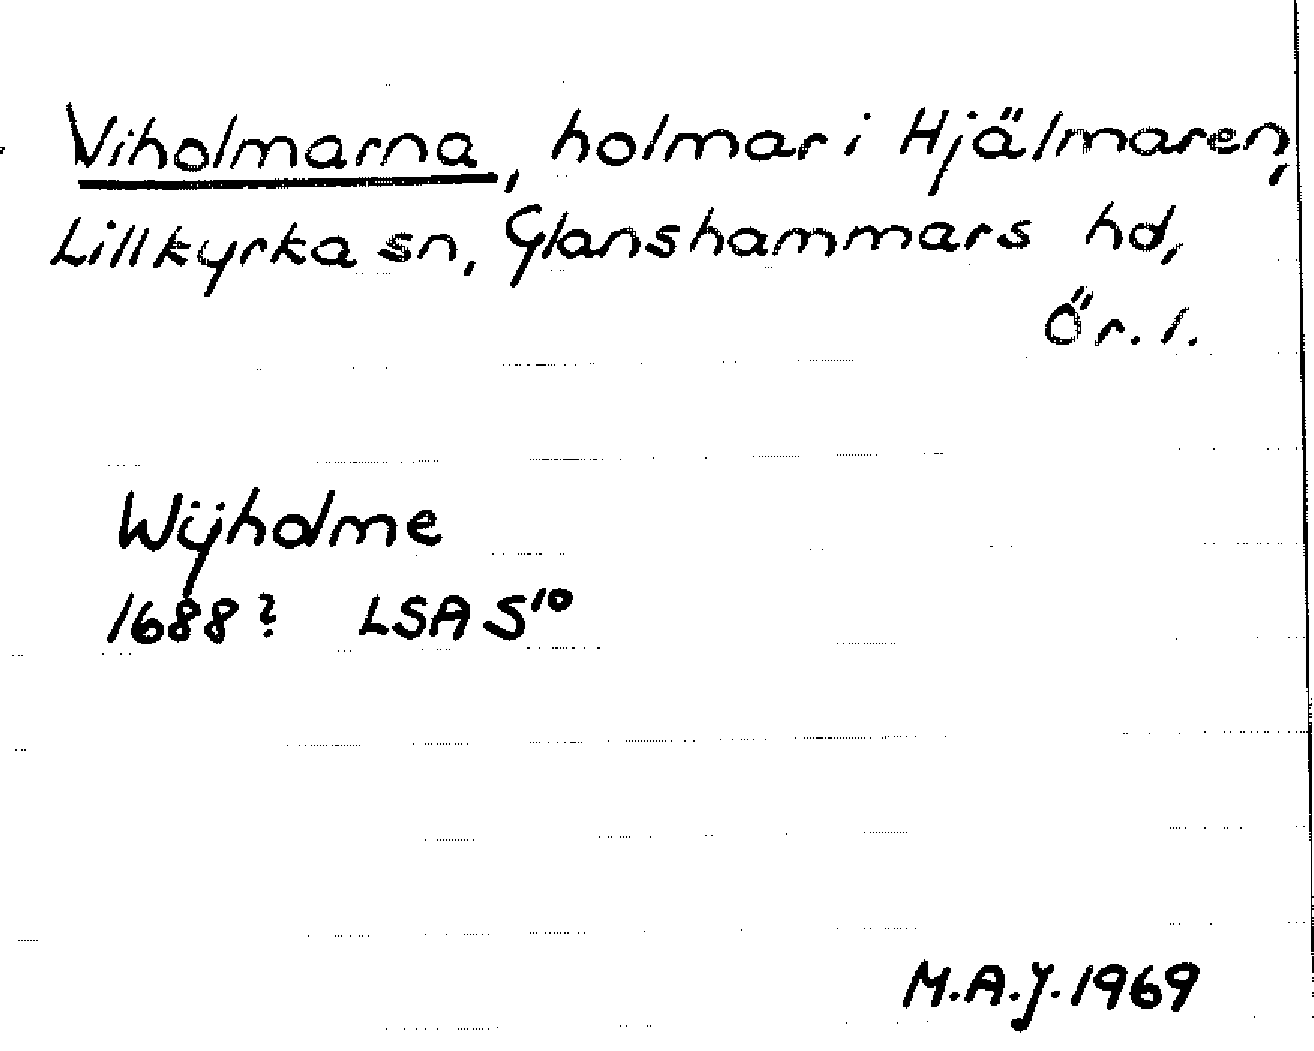 Viholmarna, holmar i Hjälmaren,
Lillkyrka sn, Glanshammars hd,
Ör. l.
Wÿholme
1688? LSA S¹⁰
M.A.J. 1969